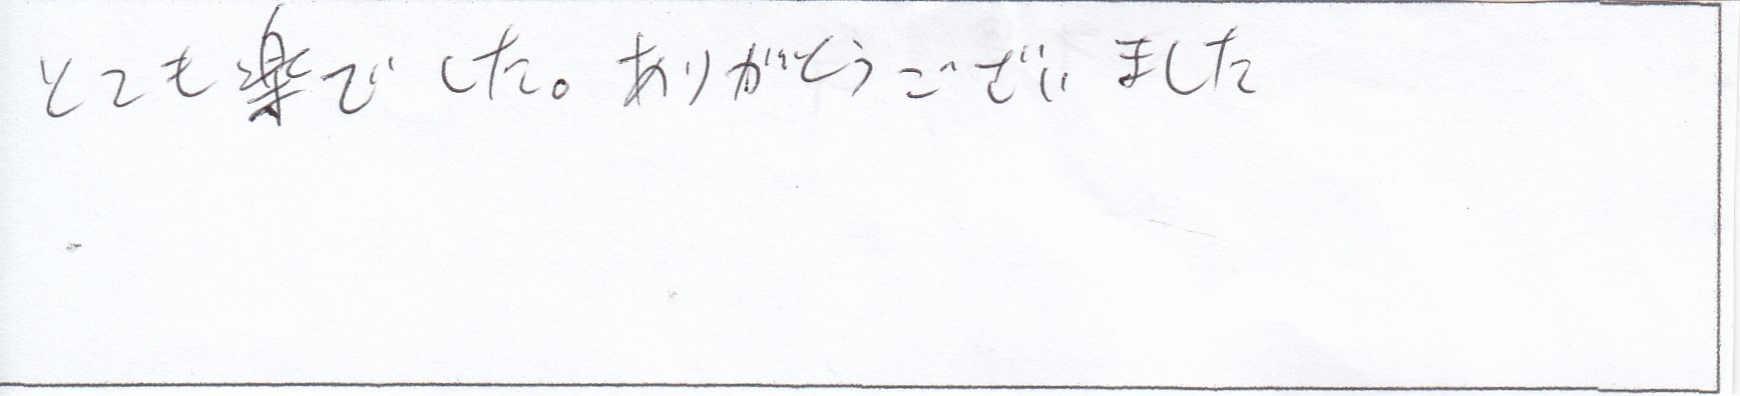 とても楽でした。ありがとうございました